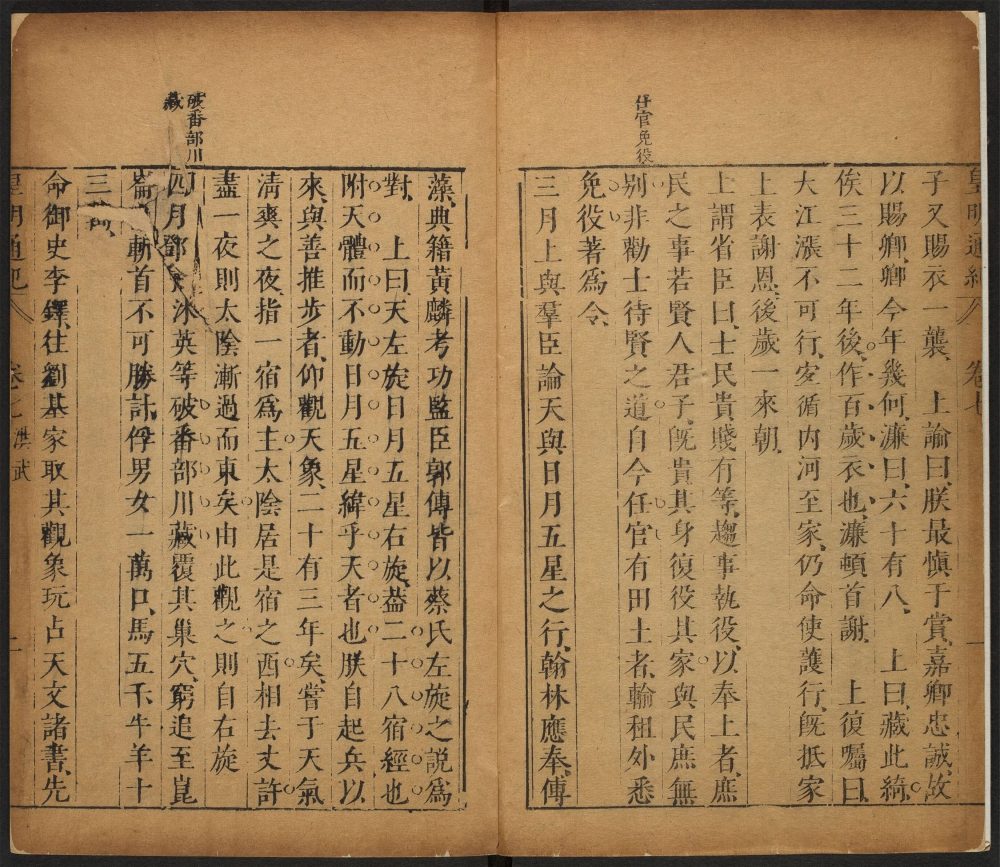 皇明通紀 卷七
子又賜衣一襲上諭曰朕最愼于賞嘉卿忠誠故
以賜卿卿今年幾何濂曰六十有八上曰藏此綺
俟三十二年後作百歲衣也濂頓首謝上復囑曰
大江漲不可行宜循内河至家仍命使護行旣抵家
上表謝恩後歲一來朝
上謂省臣曰士民貴賤有等趨事執役以奉上者庶
民之事若賢人君子旣貴其身復役其家與民庶無
仕官免役
别非勸士待賢之道自今任官有田土者輸租外悉
免役著爲令
三月上與羣臣論天與日月五星之行翰林應奉傅
藻典籍黃麟考功監臣郭傳皆以蔡氏左旋之說爲
對上曰天左旋日月五星右旋葢二十八宿經也
附天體而不動日月五星緯乎天者也朕自起兵以
來與善推步者仰觀天象二十有三年矣嘗于天氣
淸爽之夜指一宿爲主太陰居是宿之西相去丈許
盡一夜則太陰漸過而東矣由此觀之則自右旋
破番部川
藏
四月鄧沐英等破番部川藏覆其巢穴窮追至崑
崙斬首不可勝計俘男女一萬口馬五千牛羊十
三萬
命御史李鐸往劉基家取其觀象玩占天文諸書先
皇明通紀 卷七 洪武